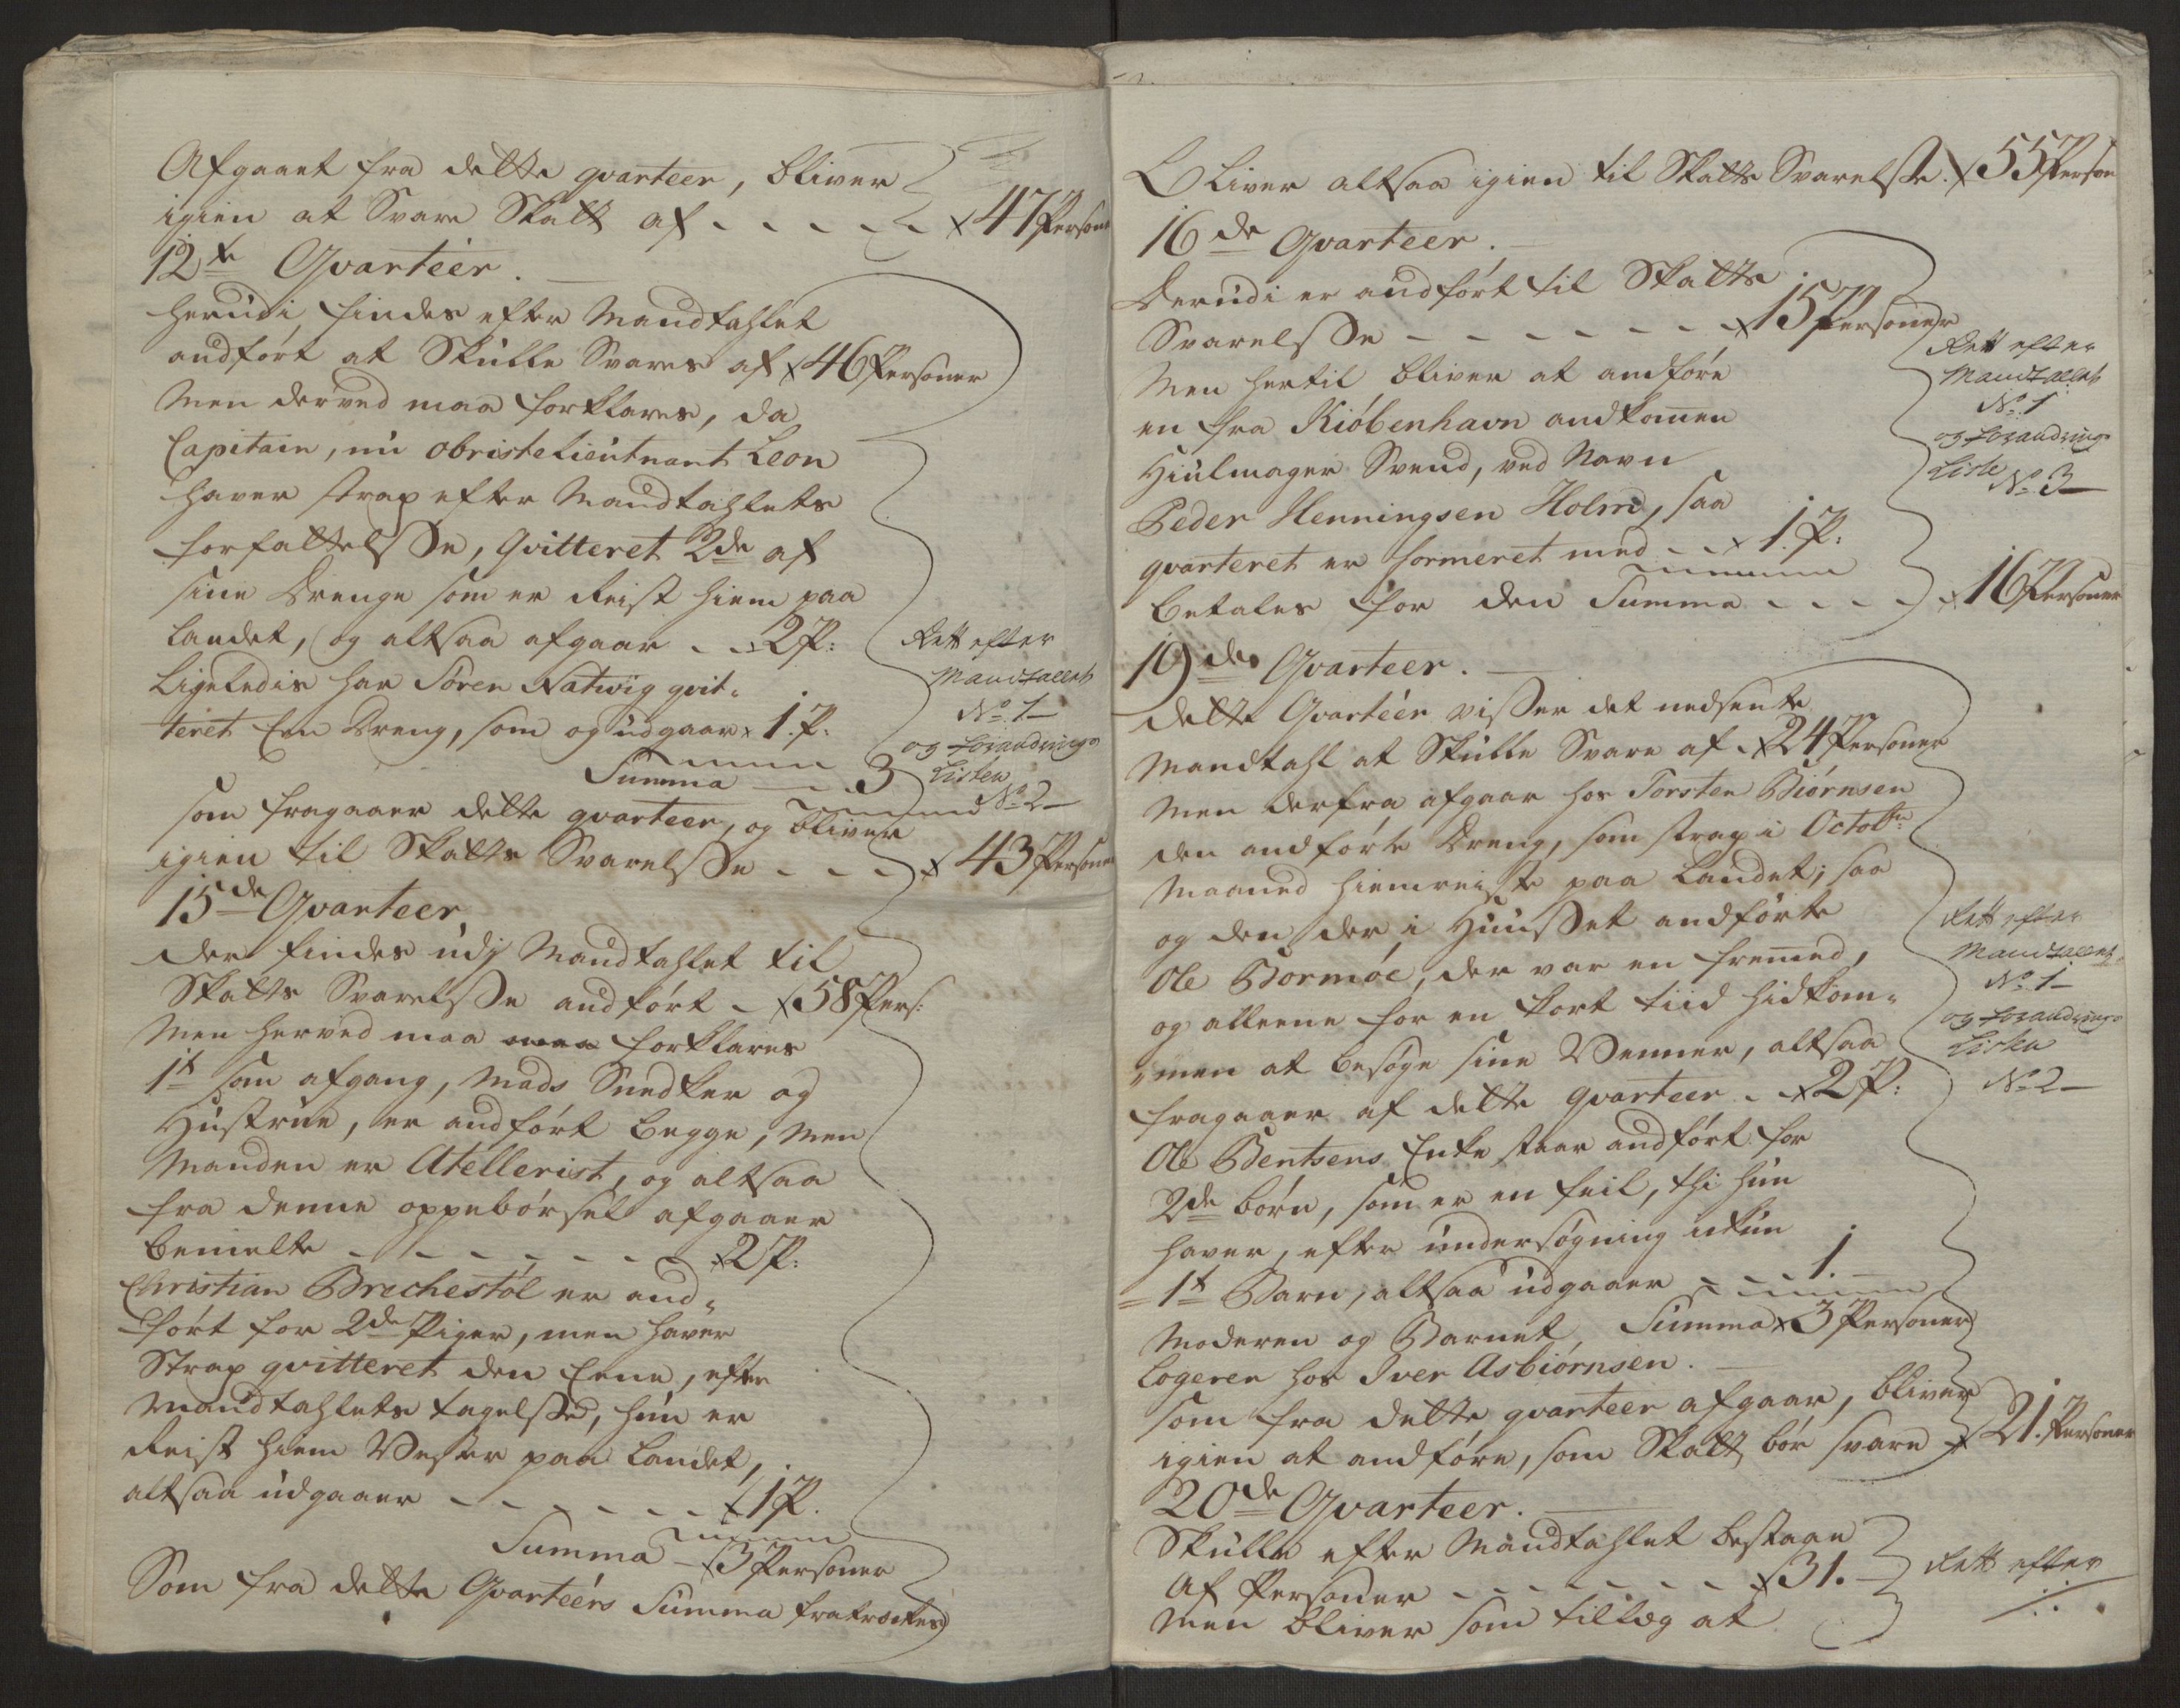 Afgaaet fra dette qvarteer, bliver
igien at Svare Skatt af - - - - - x 47 Persone
12te Qvarteer.
herudi findes efter Mandtahlet
andført at Skulle Svares af x 46 Personer
Men derved maa forklares, da
Capitain, nu Obristelieutnant Leon
haver strax efter Mandtahlets
forfattelsse, Qvitteret 2de af
sine Drenge som er Reist hiem paa
Landet, og altsaa afgaar - - x 2 P:
Ligeledis har Sören Natwig qvit-
teret Een Dreng, som og udgaar x 1. P:
Summa - - 3
som fragaaer dette qvarteer, og bliver
igien til Skatts Svarelsse - - - x 43 Persone
Rett efter
Mandtallet
No. 1
og forandrings
Listen
No. 2
15de Qvarteer
der findes udj Mandtahlet til
Skatts Svarelsse andført - x 58 Pers:
Men herved maa maa forklares
1t som afgang, Mads Snedker og
Hustrue, er andført begge, Men
Manden er Atellerist, og altsaa
fra denne oppebørsel afgaaer
bemelte - - - - - - - x 2 P:
Christian Brechestøl er and-
ført for 2de Piger, men haver
Strax qvitteret den Eene, efter
Mandtahlets tagelsse, hun er
Reist hiem Vester paa Landet,
altsaa udgaaer - - - - - - x 1 P.
Summa - x 3 Personer
Som fra dette Qvarteers Summa fratrækkes
Bliver altsaa igien til Skatts Svarelsse. x 55 Person
16de Qvarteer.
Derudi er andført til Skatts
Svarelsse - - - - - - - x 15 Personer
Men hertil bliver at andføre
en fra Kiøbenhavn andkomen
Hiulmager Svend, ved Navn
Peder Henningsen Holm, saa
qvarteret er formeret med - - x 1. P:
betales for den Summa - - - - x 16 Personer
Rett efter
Mandtallet
No. 1
og forandrings
Liste No. 3
19des Qvarteer.
dette Qvarteer visser det nedsente
Mandtahl at Skulle Svare af x 24 Personer
Men derfra afgaar hos Torsten Biørnsen
den andførte Dreng, som strax i Octobr:
Maaned hiemreiste paa Landet, saa
og den der i Huusset andførte
Ole Bormøe, der var en fremed,
og alleene for en kort tiid hidkom-
men at besøge sine Venner, altsaa
fragaaer af dette qvarteer - x 2 P:
Ole Bentsens Enke staar andført for
2de børn, som er en feil, thi hun
haver, efter undersøgning ickun
1t Barn, altsaa udgaaer - - - 1.
Moderen og Barnet, Summa x 3 Personer
Logerer hos Iver Asbiørnsen.
som fra dette qvarteer afgaar, bliver
igien at andføre, som Skatt bør svare x 21. Personer
Rett efter
Mandtallet
No. 1
og forandrings
Listen
No. 2
20de Qvarteer.
Skulle efter Mandtahlet bestaae
Af Personer - - - - - - - x 31.
Men bliver som tillæg at
Rett efter